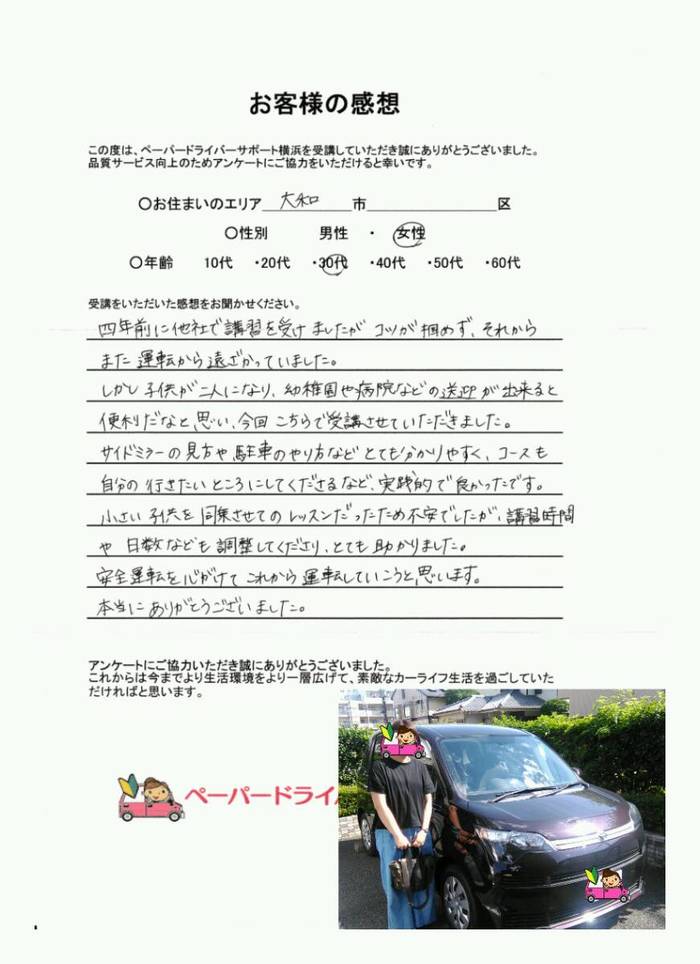 お客様の感想
この度は、ペーパードライバーサポート横浜を受講していただき誠にありがとうございました。
品質サービス向上のためアンケートにご協力をいただけると幸いです。
〇お住まいのエリア 大和 市 区
〇性別 男性 ・ 女性
〇年齢 10代 ・20代 ・30代 ・40代 ・50代 ・60代
受講をいただいた感想をお聞かせください。
四年前に他社で講習を受けましたが コツが掴めず、それから
また運転から遠ざかっていました。
しかし子供が二人になり、幼稚園や病院などの送迎が出来ると
便利だなと思い、今回こちらで受講させていただきました。
サイドミラーの見方や駐車のやり方などとても分かりやすく、コースも
自分の行きたいところにしてくださるなど、実践的で良かったです。
小さい子供を同乗させてのレッスンだったため不安でしたが、講習時間
や 日数なども調整してくださり、とても助かりました。
安全運転を心がけてこれから運転していこうと思います。
本当にありがとうございました。
アンケートにご協力いただき誠にありがとうございました。
これからは今までより生活環境をより一層広げて、素敵なカーライフ生活を過ごしていた
だければと思います。
ペーパードライバ